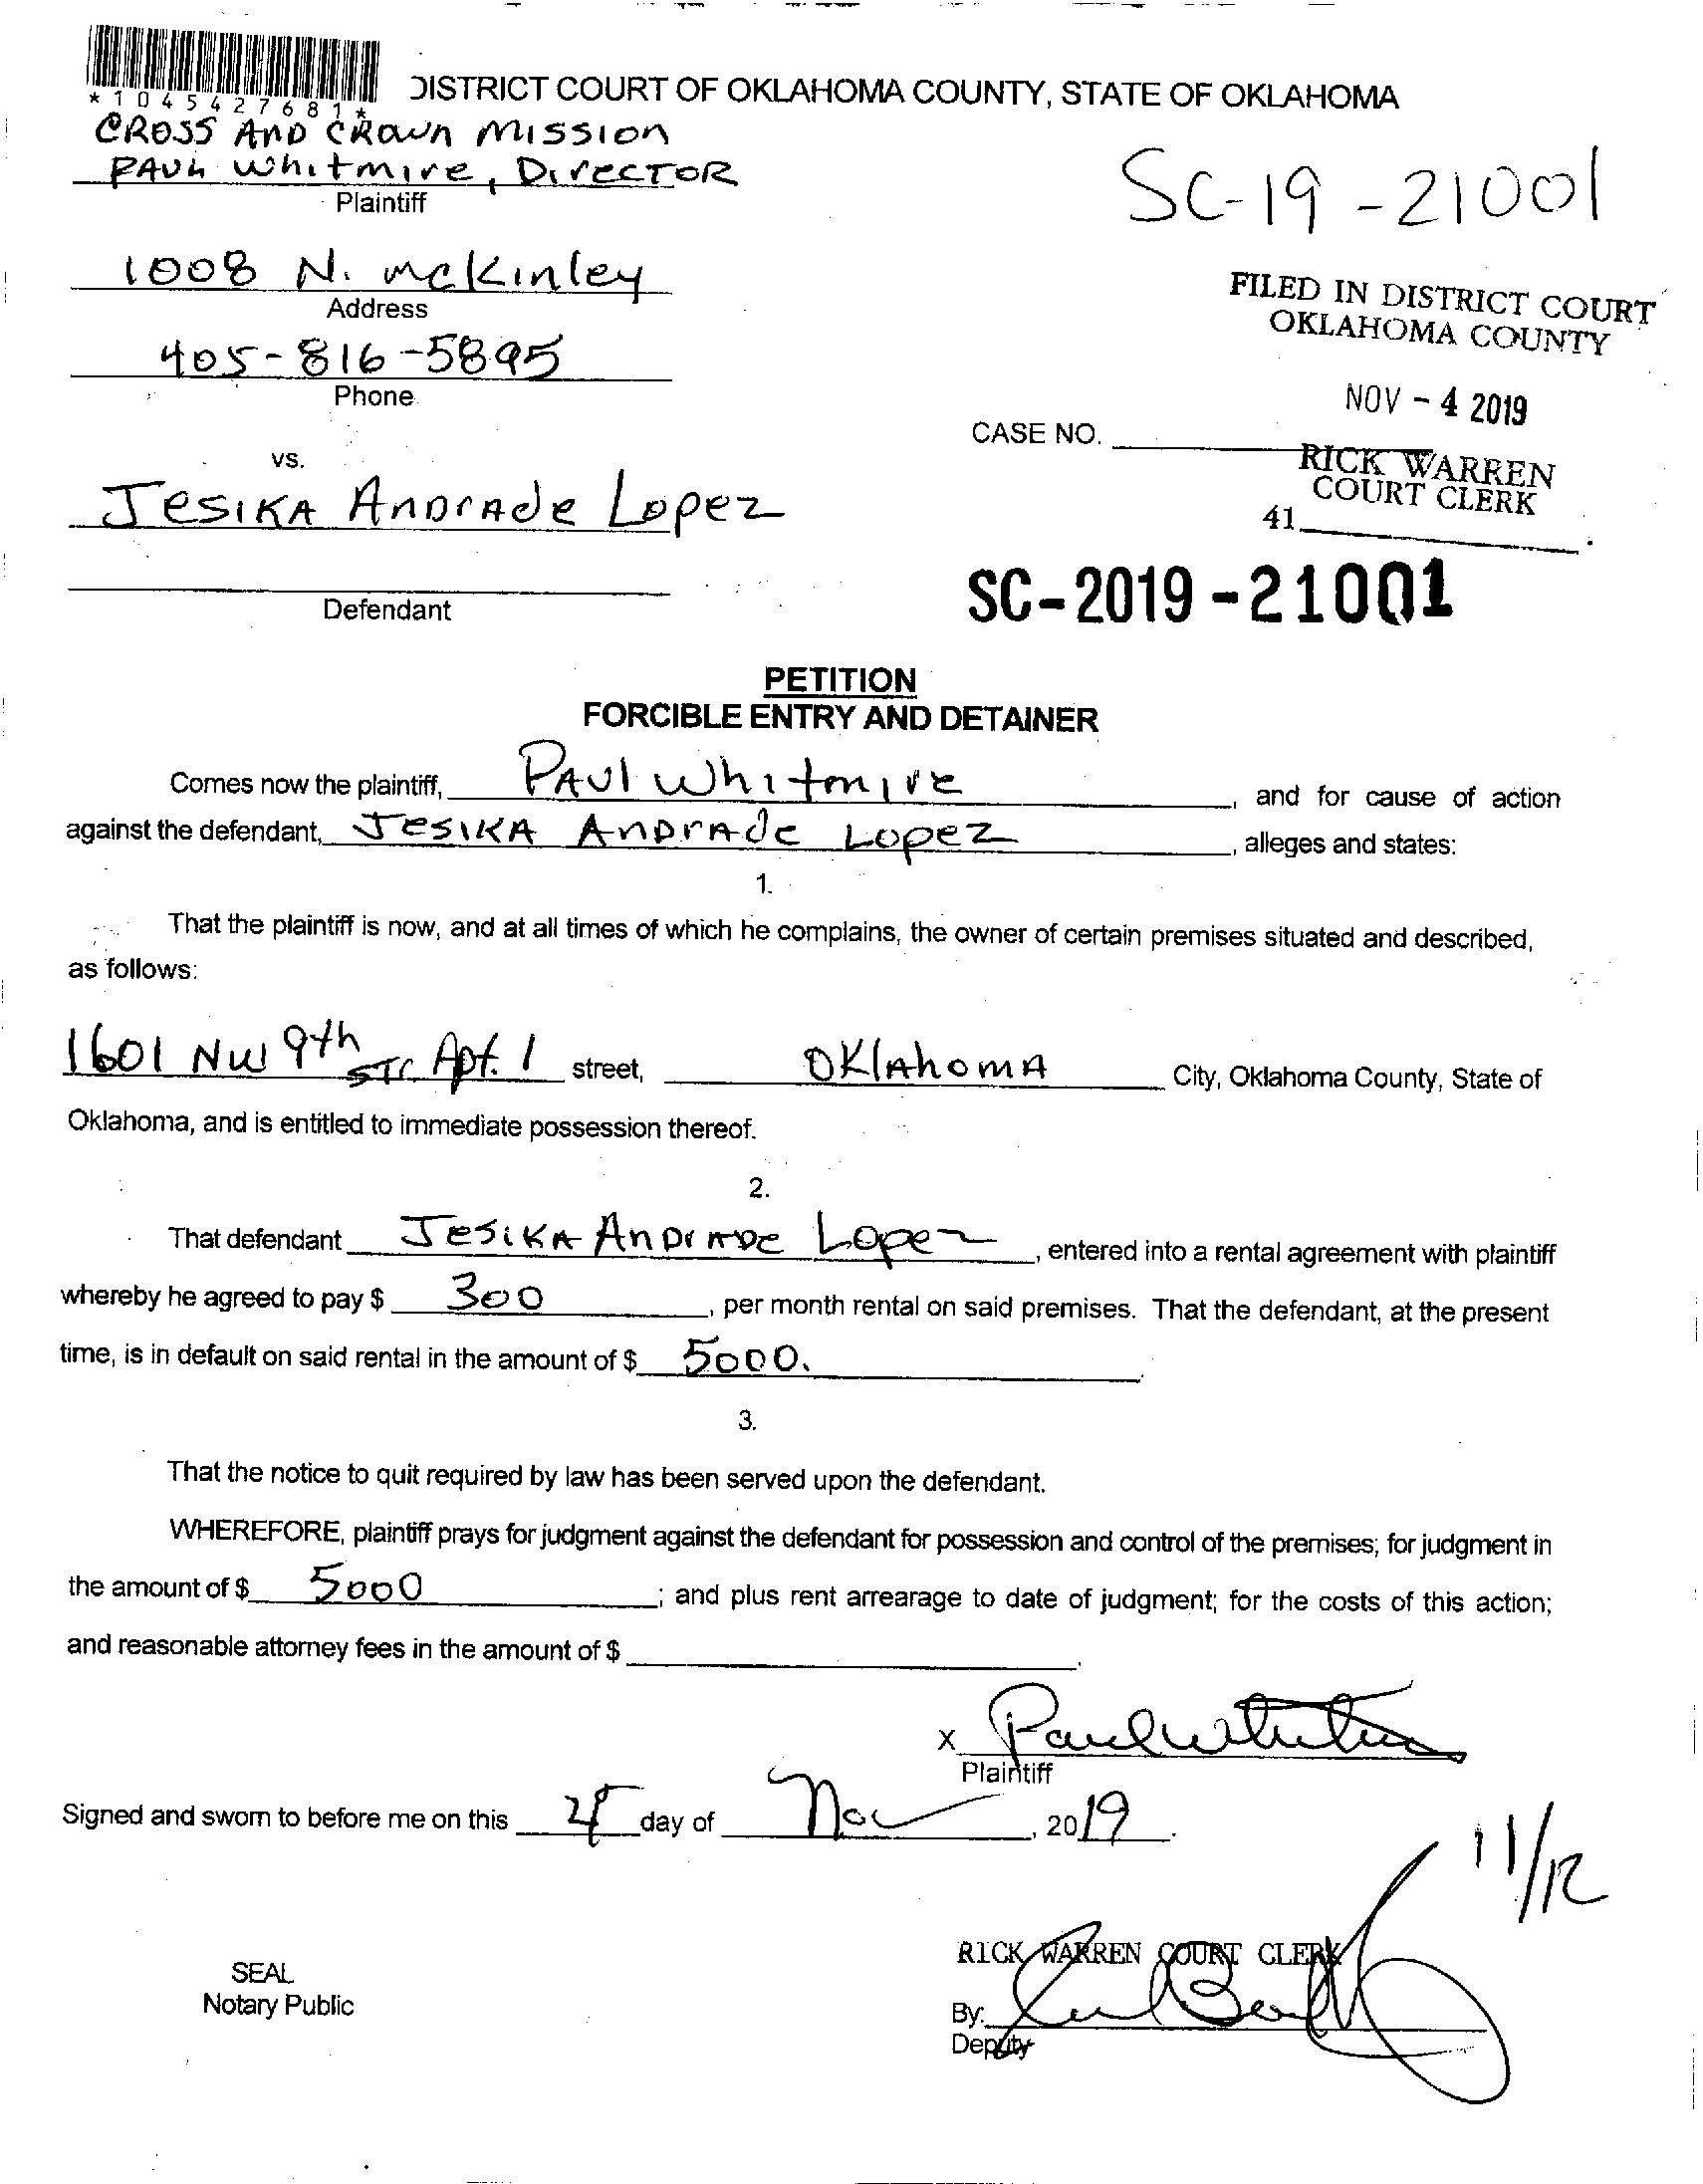 *1045427681*
DISTRICT COURT OF OKLAHOMA COUNTY, STATE OF OKLAHOMA
CROSS AND CROWN MISSION
PAUL Whitmire, DIRECTOR
Plaintiff
SC-19-21001
1008 N. McKinley
Address
FILED IN DISTRICT COURT
OKLAHOMA COUNTY
405-816-5895
Phone
NOV - 4 2019
CASE NO.
RICK WARREN
COURT CLERK
41
vs.
JESIKA ANDRADE LOPEZ
Defendant
SC-2019-21001
PETITION
FORCIBLE ENTRY AND DETAINER
Comes now the plaintiff, PAUL Whitmire, and for cause of action
against the defendant, JESIKA ANDRADE LOPEZ, alleges and states:
1.
That the plaintiff is now, and at all times of which he complains, the owner of certain premises situated and described,
as follows:
1601 NW 9th Apt. 1 street, OKLAHOMA City, Oklahoma County, State of
Oklahoma, and is entitled to immediate possession thereof.
2.
That defendant JESIKA ANDRADE Lopez, entered into a rental agreement with plaintiff
whereby he agreed to pay $ 300, per month rental on said premises. That the defendant, at the present
time, is in default on said rental in the amount of $ 5000.
3.
That the notice to quit required by law has been served upon the defendant.
WHEREFORE, plaintiff prays for judgment against the defendant for possession and control of the premises; for judgment in
the amount of $ 5000; and plus rent arrearage to date of judgment; for the costs of this action;
and reasonable attorney fees in the amount of $
X Paul Whitmire
Plaintiff
Signed and sworn to before me on this 4 day of Nov, 2019.
11/12
RICK WARREN COURT CLERK
SEAL
Notary Public
By:
Deputy